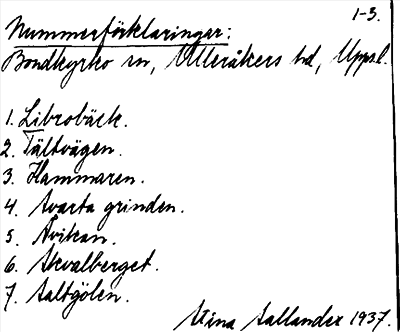 1-3.
Nummerförklaringar:
Bondkyrko sn, Ulleråkers hd, Uppsl.
1. Librobäck.
2. Tältvägen.
3. Hammaren.
4. Svarta grinden.
5. Åvikan.
6. Skvalberget.
7. Saltgölen.
Stina Sallander 1937.